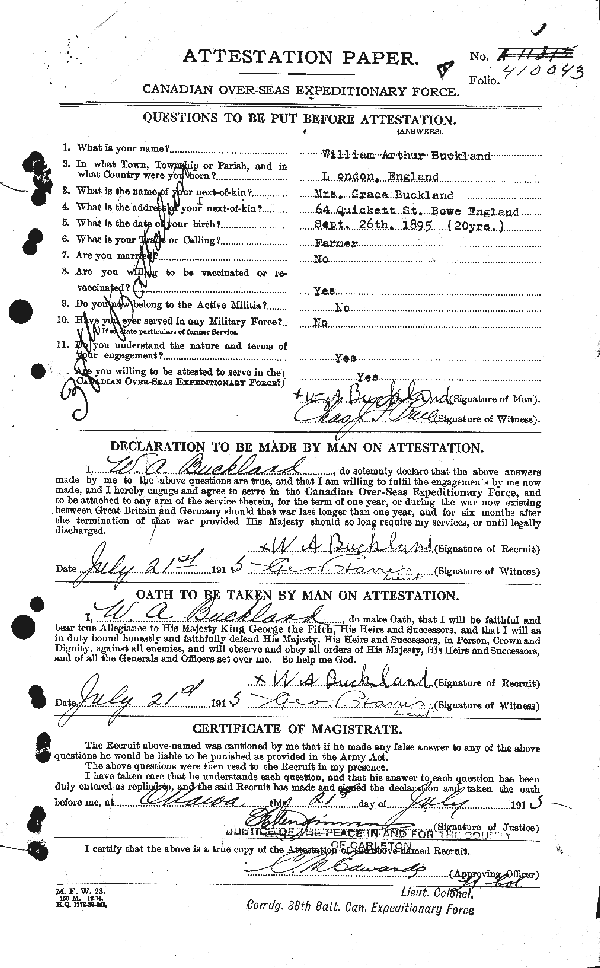 ATTESTATION PAPER.
No.
Folio.
410043
CANADIAN OVER-SEAS EXPEDITIONARY FORCE.
QUESTIONS TO BE PUT BEFORE ATTESTATION.
(ANSWERS).
1. What is your name? William Arthur Buckland
2. In what Town, Township or Parish, and in
what Country were you born? London, England
3. What is the name of your next-of-kin? Mrs. Grace Buckland
4. What is the address of your next-of-kin? 64 Quickett St. Bowe England
5. What is the date of your birth? Sept. 26th. 1895 (20yrs.)
6. What is your Trade or Calling? Farmer
7. Are you married? No
8. Are you willing to be vaccinated or re-
vaccinated? Yes
9. Do you now belong to the Active Militia? No
10. Have you ever served in any Military Force? No
If so, state particulars of former Service.
11. Do you understand the nature and terms of
your engagement? Yes
Are you willing to be attested to serve in the
CANADIAN OVER-SEAS EXPEDITIONARY FORCE? Yes
W A Buckland (Signature of Man).
(Signature of Witness).
DECLARATION TO BE MADE BY MAN ON ATTESTATION.
I, W. A Buckland, do solemnly declare that the above answers
made by me to the above questions are true, and that I am willing to fulfil the engagements by me now
made, and I hereby engage and agree to serve in the Canadian Over-Seas Expeditionary Force, and
to be attached to any arm of the service therein, for the term of one year, or during the war now existing
between Great Britain and Germany should that war last longer than one year, and for six months after
the termination of that war provided His Majesty should so long require my services, or until legally
discharged.
x W A Buckland (Signature of Recruit)
Date July 21st 1915 (Signature of Witness)
OATH TO BE TAKEN BY MAN ON ATTESTATION.
I, W. A Buckland, do make Oath, that I will be faithful and
bear true Allegiance to His Majesty King George the Fifth, His Heirs and Successors, and that I will as
in duty bound honestly and faithfully defend His Majesty, His Heirs and Successors, in Person, Crown and
Dignity, against all enemies, and will observe and obey all orders of His Majesty, His Heirs and Successors,
and of all the Generals and Officers set over me. So help me God.
x W A Buckland (Signature of Recruit)
Date July 21st 1915 (Signature of Witness)
CERTIFICATE OF MAGISTRATE.
The Recruit above-named was cautioned by me that if he made any false answer to any of the above
questions he would be liable to be punished as provided in the Army Act.
The above questions were then read to the Recruit in my presence.
I have taken care that he understands each question, and that his answer to each question has been
duly entered as replied to, and the said Recruit has made and signed the declaration and taken the oath
before me, at Ottawa this 21st day of July 1915
(Signature of Justice)
JUSTICE OF THE PEACE IN AND FOR THE COUNTY
OF CARLETON
I certify that the above is a true copy of the Attestation of the above-named Recruit.
Edwards Lt-Col (Approving Officer)
Lieut. Colonel.
Comdg. 38th Batt. Can. Expeditionary Force
M. F. W. 23.